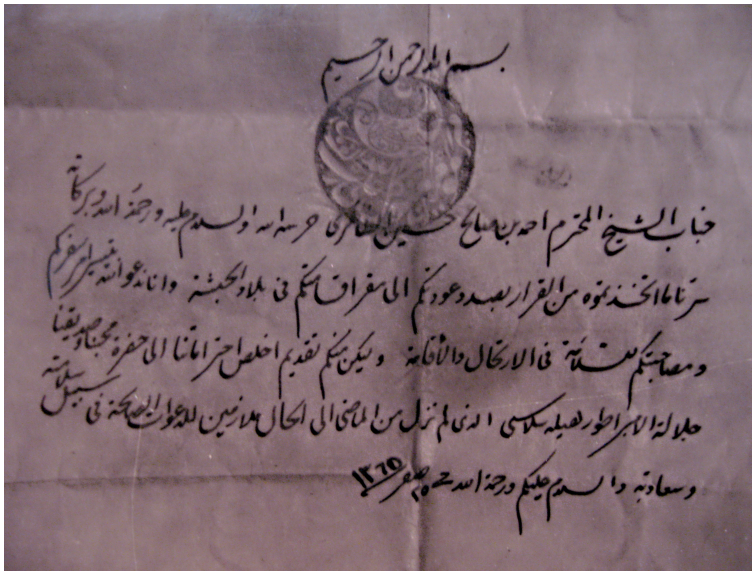 بسم الله الرحمن الرحيم
جناب الشيخ المحترم احمد بن صالح حسين الظاهرى حرسه الله والسلام عليه ورحمة الله وبركاته
سرنا ما اتخذتموه من القرار بصدد عودتكم الى مقر اقامتكم فى بلاد الحبشة وانا ندعو الله بتيسير سفركم
ومصاحبتكم للسلامة فى الارتحال والأقامة وليكن منكم تقديم اخلص احتراماتنا الى حضرة محبنا وصديقنا
جلالة الامبراطور هيله سلاسى الذى لم نزل من الماضى الى الحال ملازمين للدعوات الصالحة فى سبيل سلامته
وسعادته والسلام عليكم ورحمة الله ٢٥ صفر ١٣٦٥